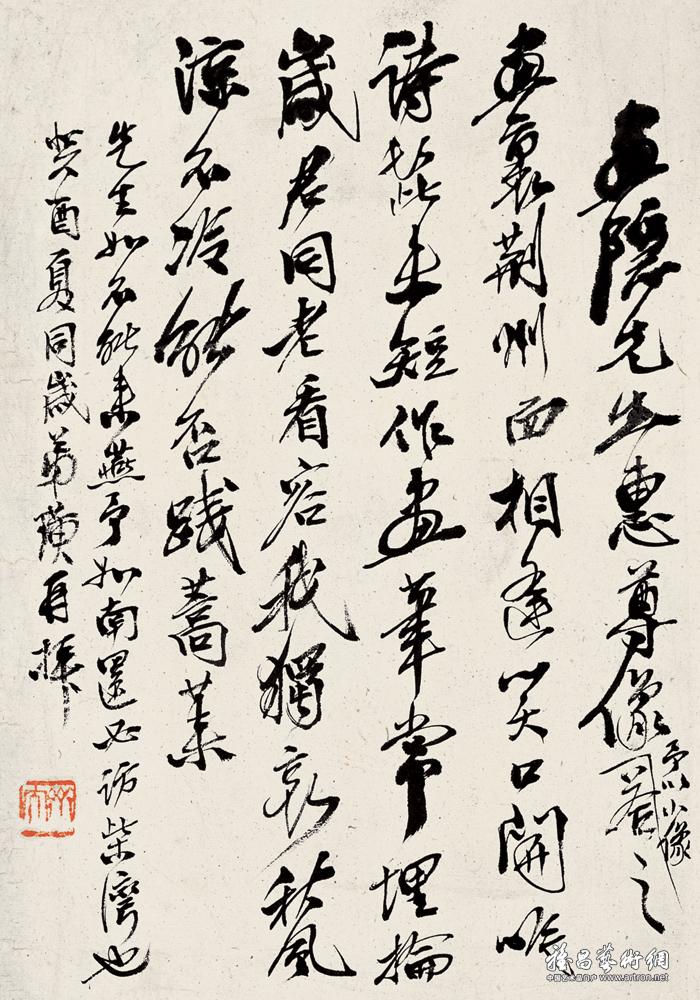 隱先生惠尊像予以小像荅之
畫裏荆州面相逢笑口開吟
詩髭短作畫筆常埋掄
歲君同老看容我獨衰秋風
涼不冷能否踐蒿萊
先生如不能來燕予如南還必訪柴灣也
癸酉夏同歲弟璜再拜
雅昌藝術網
www.artron.net